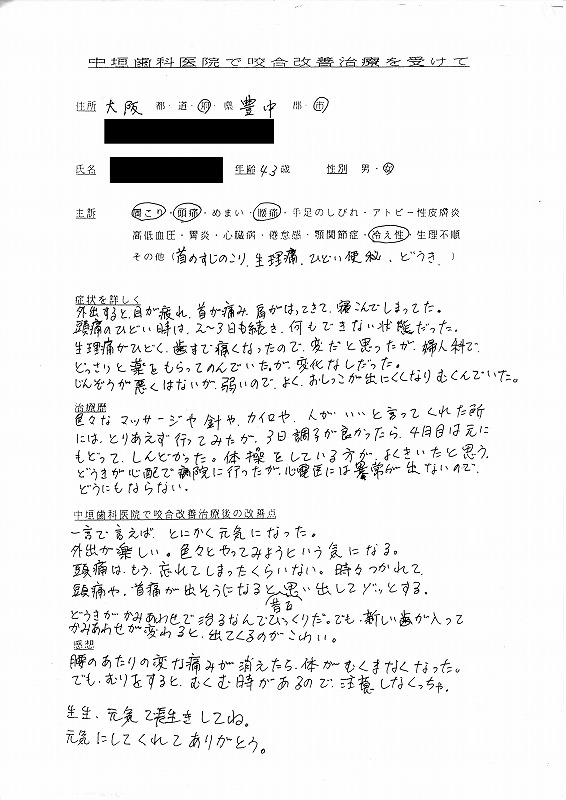 中垣歯科医院で咬合改善治療を受けて
住所 大阪 都・道・府・県 豊中 郡・市
氏名 年齢 43歳 性別 男・女
主訴 肩こり・頭痛・めまい・腰痛・手足のしびれ・アトピー性皮膚炎
高低血圧・胃炎・心臓病・倦怠感・顎関節症・冷え性・生理不順
その他(首のすじのこり、生理痛、ひどい便秘、どうき、)
症状を詳しく
外出すると、目が疲れ、首が痛み、肩がはってきて、寝こんでしまってた。
頭痛のひどい時は、2〜3日も続き、何もできない状態だった。
生理痛がひどく、歯まで痛くなったので、変だと思ったが、婦人科で、
どっさりと薬をもらってのんでいたが、変化なしだった。
じんぞうが悪くはないが、弱いので、よく、おしっこが出にくくなりむくんでいた。
治療歴
色々なマッサージや針や、カイロや、人がいいと言ってくれた所
には、とりあえず行ってみたが、3日調子が良かったら、4日目は元に
もどって、しんどかった。体操をしている方が、よくきいたと思う。
どうきが心配で病院に行ったが、心電図には異常が出ないので、
どうにもならない。
中垣歯科医院で咬合改善治療後の改善点
一言で言えば、とにかく元気になった。
外出が楽しい。色々とやってみようという気になる。
頭痛は、もう、忘れてしまったくらいない。時々つかれて、
頭痛や、首痛が出そうになると、昔を思い出してゾッとする。
どうきがかみあわせで治るなんてびっくりだ。でも、新しい歯が入って
かみあわせが変わると、出てくるのがこわい。
感想
腰のあたりの変な痛みが消えたら、体がむくまなくなった。
でも、むりをすると、むくむ時があるので、注意しなくっちゃ。
先生、元気で長生きしてね。
元気にしてくれてありがとう。